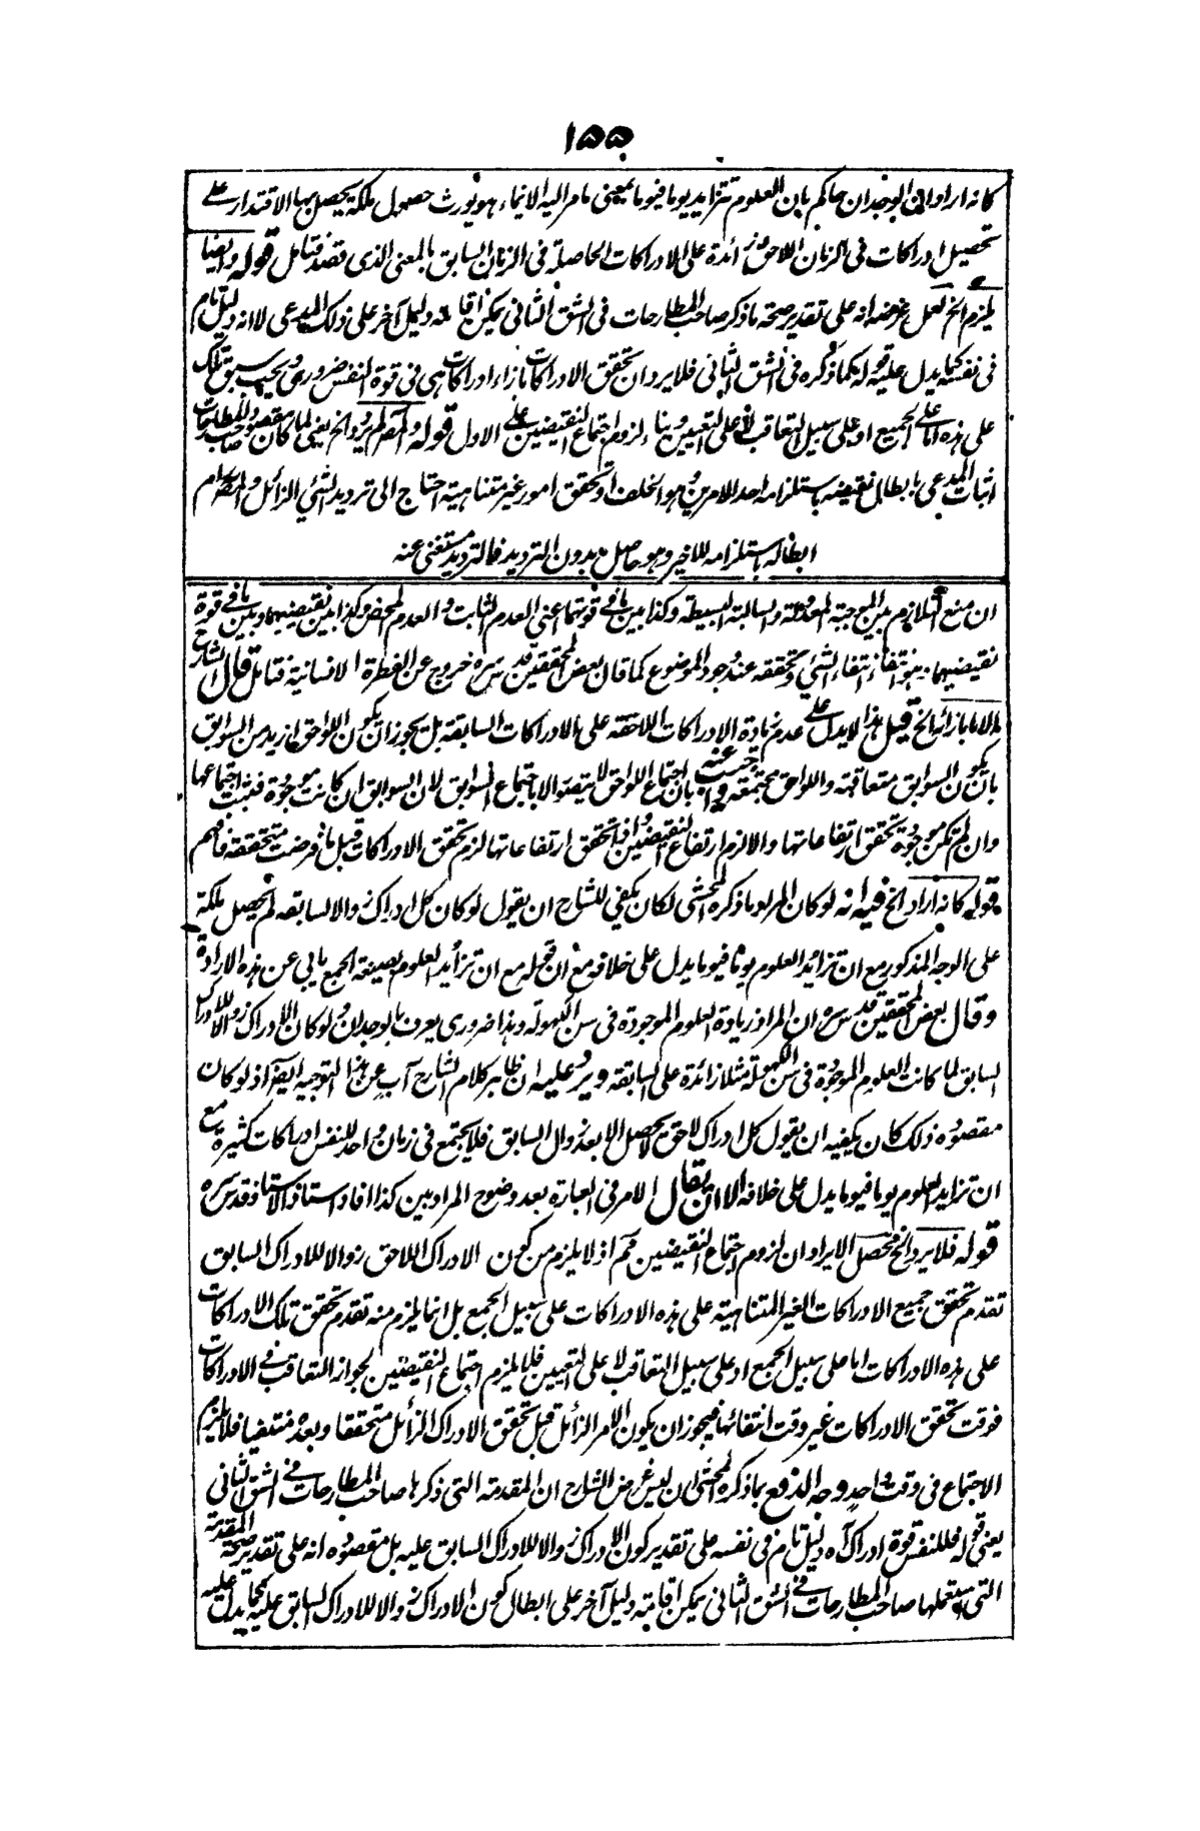 ١٥٥
كانه اراد ان الوجدان حاكم بان العلوم تتزايد يوما فيوما بمعنى مامر اليه الايماء وهو يورث حصول ملكة يحصل بها الاقتدار على
تحصيل ادراكات فى الزمان اللاحق زائدة على الادراكات الحاصلة فى الزمان السابق بالمعنى الذى قصد فتامل قوله وايضا
يلزم الخ لعل غرضه انه على تقدير صحة ما ذكر صاحب المطارحات فى الشق الثانى يمكن اقامة دليل آخر على ذلك المدعى لا انه دليل تام
فى نفسه كما يدل عليه قوله كما ذكره فى الشق الثانى فلا يرد ان تحقق الادراكات بازاء ادراكات هى فى قوة النفس ضرورى ويجب سبق تلك
على هذه اما على الجميع او على سبيل التعاقب لا على التعيين وبناء لزوم اجتماع النقيضين على الاول قوله والمقدم يرد الخ يعنى لما كان مقصود صاحب المطارحات
اثبات المدعى بابطال نقيضه باستلزامه احد الامرين وهو الخلف او تحقق امور غير متناهية احتاج الى ترديد الشئ الزائل والمقصود
ابطاله باستلزامه للاخير وهو حاصل بدون الترديد فالترديد مستغنى عنه
ان منع التلازم بين الموجبة المعدولة والسالبة البسيطة وكذا بين ما فى قوتهما اعنى العدم الثابت والعدم المحض وكذا بين نقيضيهما وبين ما فى قوة
نقيضيهما وبين انتفاء انتفاء الشئ وتحققه عند وجود الموضوع كما قال بعض المحققين قدس سره خروج عن الفطرة الانسانية فتامل قال الشارح
الخ قيل هذا لا يدل على عدم زيادة الادراكات اللاحقة على الادراكات السابقة بل يجوز ان يكون اللواحق ازيد من السوابق
بان تكون السوابق متعاقبة واللواحق مجتمعة واجيب عنه بان اجتماع اللواحق لا يتصور الا باجتماع السوابق لان السوابق ان كانت موجودة فثبت اجتماعها
وان لم تكن موجودة تحقق ارتفاعاتها والا لزم ارتفاع النقيضين واذا تحقق ارتفاعاتها لزم تحقق الادراكات قبل ما فرضت متحققة فافهم
قوله كانه اراد الخ فيه انه لو كان المراد ما ذكره المحشى لكان يكفى للشارح ان يقول لو كان كل ادراك زوالا لسابقه لم تحصل ملكة
على الوجه المذكور مع ان تزائد العلوم يوما فيوما يدل على خلافه مع ان تزايد العلوم بصيغة الجمع يابى عن هذه الارادة
وقال بعض المحققين قدس سره ان المراد زيادة العلوم الموجودة فى سن الكهولة وهذا ضرورى يعرف بالوجدان ولو كان الادراك زوالا للادراك
السابق لما كانت العلوم الموجودة فى سن الكهولة مثلا زائدة على السابقة ويرد عليه ان ظاهر كلام الشارح آب عن هذا التوجيه ايضا اذ لو كان
مقصوده ذلك كان يكفيه ان يقول كل ادراك لاحق لا يحصل الا بعد زوال السابق فلا يجتمع فى زمان واحد للنفس ادراكات كثيرة مع
ان تزايد العلوم يوما فيوما يدل على خلافه الا ان يقال الامر فى العبارة بعد وضوح المراد بين كذا افاد استاذ الاستاذ قدس سره
قوله فلا يرد الخ محصل الايراد ان لزوم اجتماع النقيضين مم اذ لا يلزم من كون الادراك اللاحق زوالا للادراك السابق
تقدم تحقق جميع الادراكات الغير المتناهية على هذه الادراكات على سبيل الجمع بل انما يلزم منه تقدم تحقق تلك الادراكات
على هذه الادراكات اما على سبيل الجمع او على سبيل التعاقب لا على التعيين فلا يلزم اجتماع النقيضين لجواز التعاقب فى الادراكات
فوقت تحقق الادراكات غير وقت انتفائها فيجوز ان يكون الامر الزائل قبل تحقق الادراك الزائل متحققا وبعده منتفيا فلا يلزم
الاجتماع فى وقت واحد وجه الدفع بما ذكره المحشى ان ليس غرض الشارح ان المقدمة التى ذكرها صاحب المطارحات فى الشق الثانى
يعنى قوله فللنفس قوة ادراك آه دليل تام فى نفسه على تقدير كون الادراك زوالا للادراك السابق عليه بل مقصوده انه على تقدير صحة المقدمة
التى يستعملها صاحب المطارحات فى الشق الثانى يمكن اقامة دليل آخر على ابطال كون الادراك زوالا للادراك السابق عليه كما يدل عليه